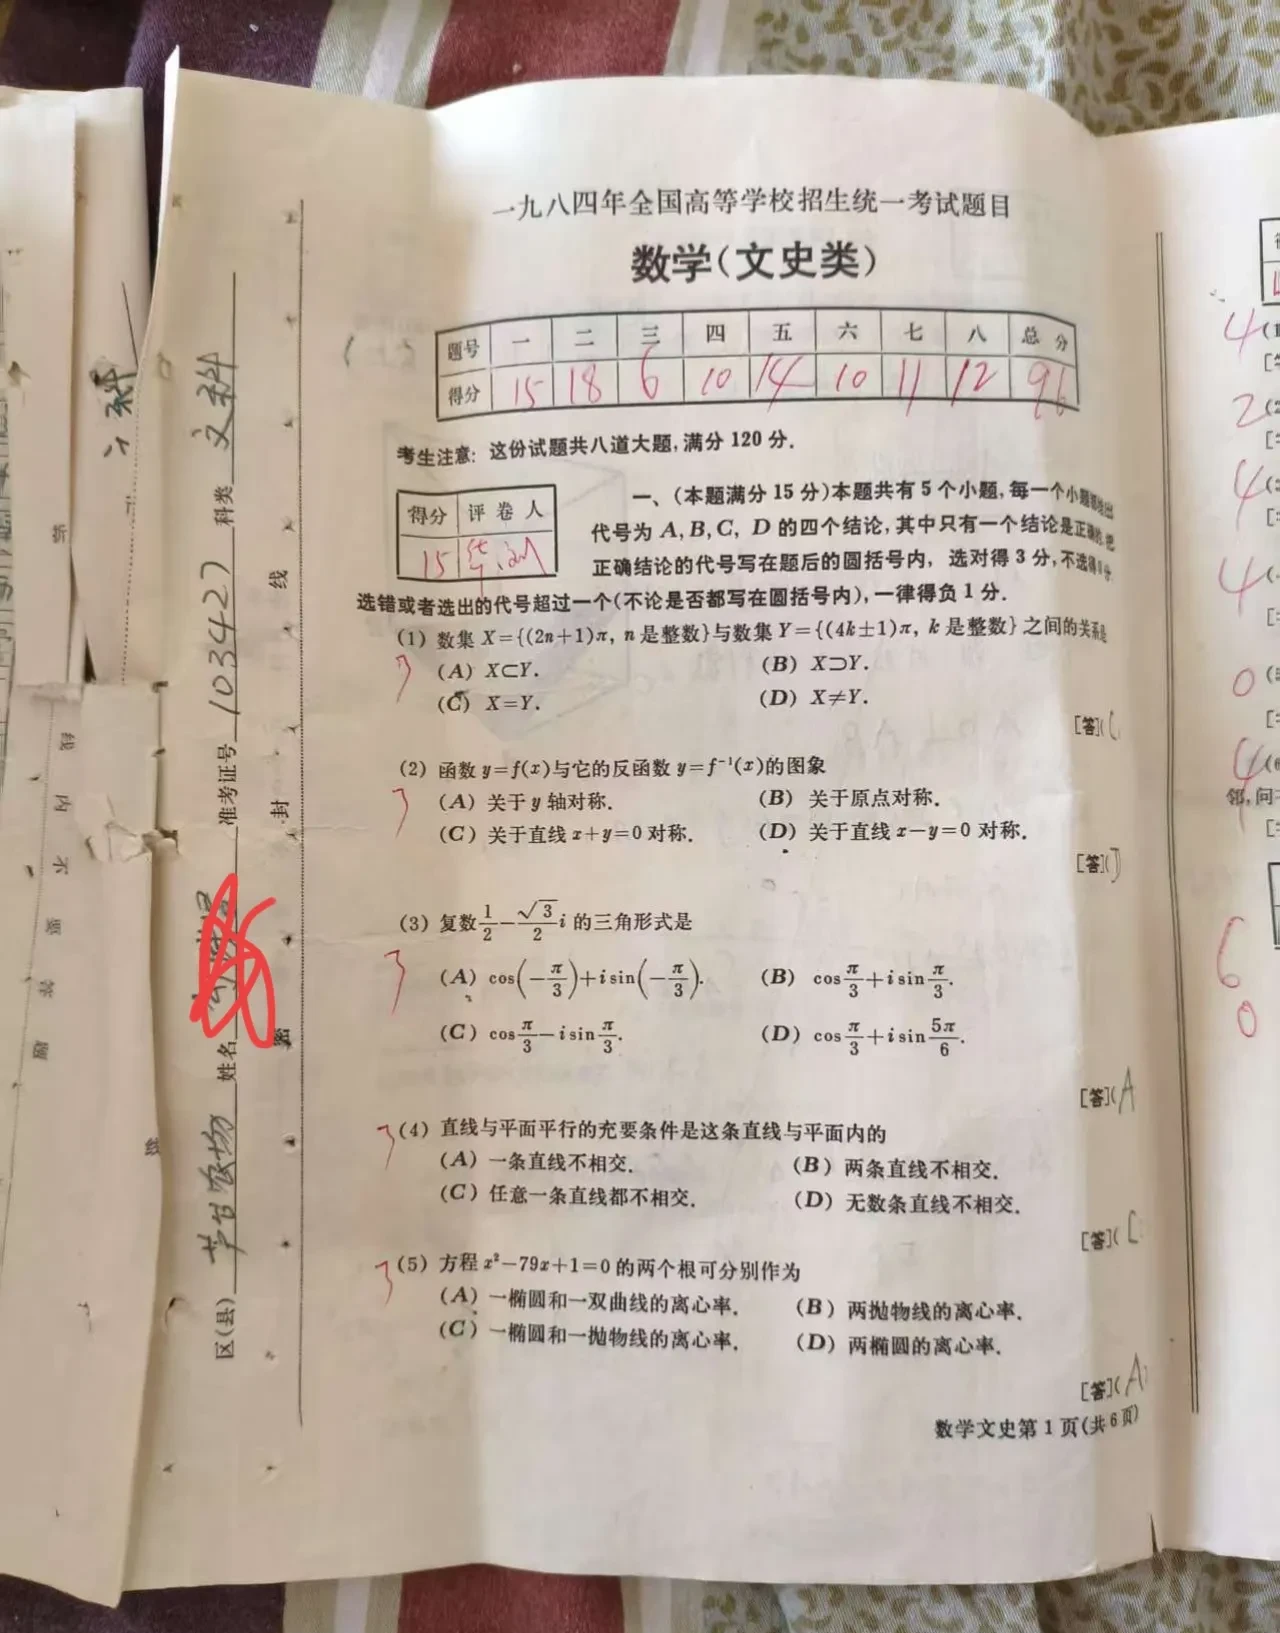 一九八四年全国高等学校招生统一考试题目
数学(文史类)
题号 一 二 三 四 五 六 七 八 总分
得分 15 18 6 10 14 10 11 12 96
考生注意: 这份试题共八道大题, 满分 120 分.
得分 评卷人
15
一、(本题满分 15 分)本题共有 5 个小题, 每一个小题都给出
代号为 A, B, C, D 的四个结论, 其中只有一个结论是正确的. 把
正确结论的代号写在题后的圆括号内, 选对得 3 分, 不选得 0 分
选错或者选出的代号超过一个(不论是否都写在圆括号内), 一律得负 1 分.
(1) 数集 X={(2n+1)π, n 是整数}与数集 Y={(4k±1)π, k 是整数} 之间的关系是
3
(A) X⊂Y. (B) X⊃Y.
(C) X=Y. (D) X≠Y.
[答](C
(2) 函数 y=f(x)与它的反函数 y=f⁻¹(x)的图象
3
(A) 关于 y 轴对称. (B) 关于原点对称.
(C) 关于直线 x+y=0 对称. (D) 关于直线 x−y=0 对称.
[答](D
(3) 复数 1/2−√3/2 i 的三角形式是
3
(A) cos(−π/3)+i sin(−π/3). (B) cos π/3+i sin π/3.
(C) cos π/3−i sin π/3. (D) cos π/3+i sin 5π/6.
[答](A
3
(4) 直线与平面平行的充要条件是这条直线与平面内的
(A) 一条直线不相交. (B) 两条直线不相交.
(C) 任意一条直线都不相交. (D) 无数条直线不相交.
[答](C
3
(5) 方程 x²−79x+1=0 的两个根可分别作为
(A) 一椭圆和一双曲线的离心率. (B) 两抛物线的离心率.
(C) 一椭圆和一抛物线的离心率. (D) 两椭圆的离心率.
[答](A)
数学文史第 1 页(共 6 页)
区(县) 芦台农场 姓名 准考证号 1034427 科类 文科
密 封 线
线 内 不 要 答 题
4
2
4
4
0
4
邻, 问
6
0